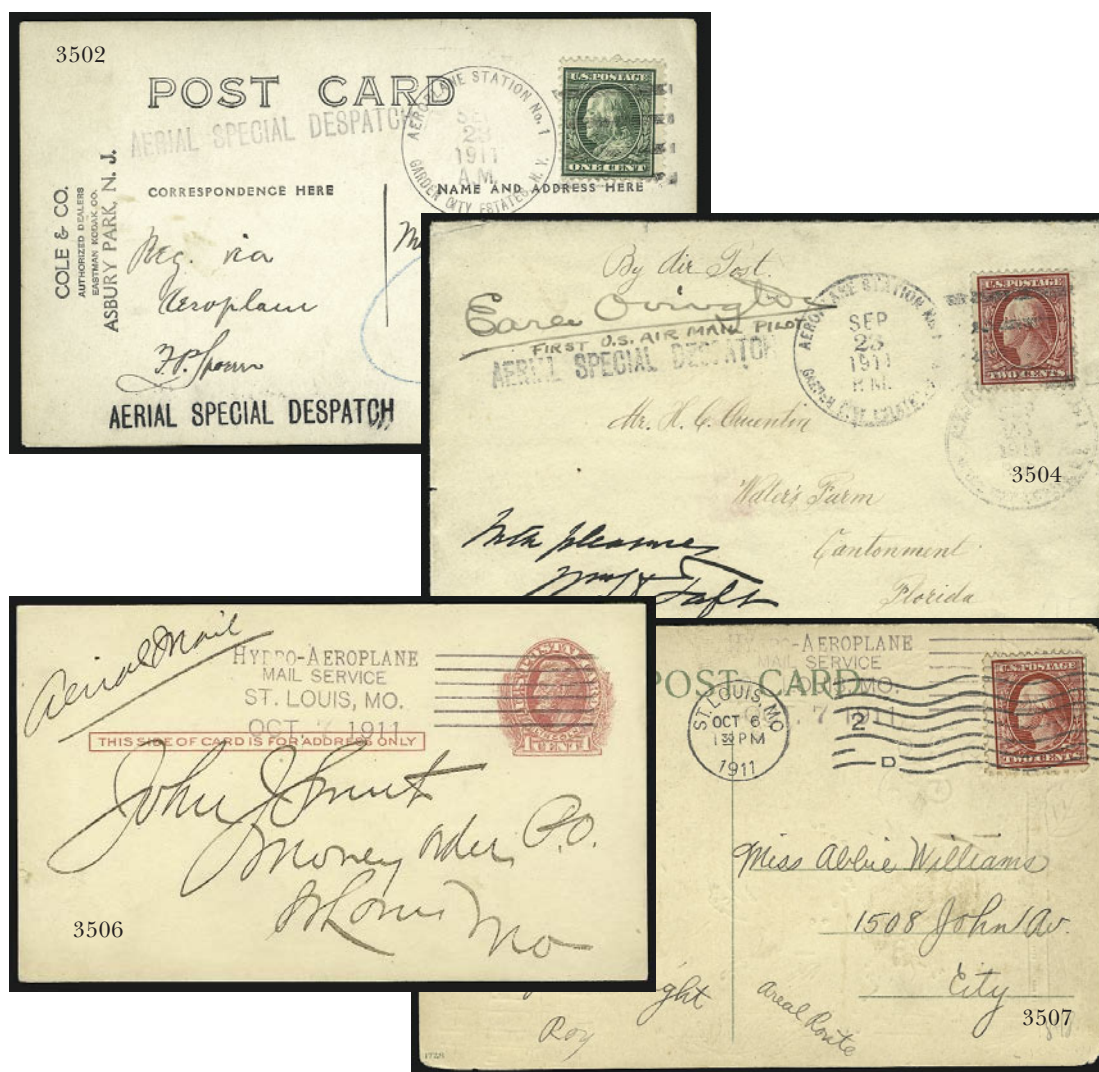 3502
POST CARD
AERIAL SPECIAL DESPATCH
AEROPLANE STATION No. 1
SEP
23
1911
A.M.
GARDEN CITY ESTATES, N. Y.
U.S. POSTAGE
ONE CENT
COLE & CO.
AUTHORIZED DEALERS
EASTMAN KODAK CO.
ASBURY PARK, N. J.
CORRESPONDENCE HERE
NAME AND ADDRESS HERE
via
Aeroplane
AERIAL SPECIAL DESPATCH
By Air Post
Earle Ovington
FIRST U.S. AIR MAIL PILOT
AERIAL SPECIAL DESPATCH
AEROPLANE STATION No. 1
SEP
23
1911
P.M.
GARDEN CITY ESTATES, N. Y.
U.S. POSTAGE
TWO CENTS
Mr. H. C. Quentin
3504
Water's Farm
Cantonment
Florida
With pleasure
Wm H Taft
Aerial Mail
HYDRO-AEROPLANE
MAIL SERVICE
ST. LOUIS, MO.
OCT. 7 1911
THIS SIDE OF CARD IS FOR ADDRESS ONLY
1 CENT 1
John J
Money Order, P.O.
St Louis
Mo
3506
HYDRO-AEROPLANE
MAIL SERVICE
ST. LOUIS, MO.
OCT. 7 1911
POST CARD
ST. LOUIS, MO
OCT 6
1 30 PM
1911
2
D
U.S. POSTAGE
TWO CENTS
Miss Abbie Williams
1508 John Av.
City
3507
ght
Roy
areal Route